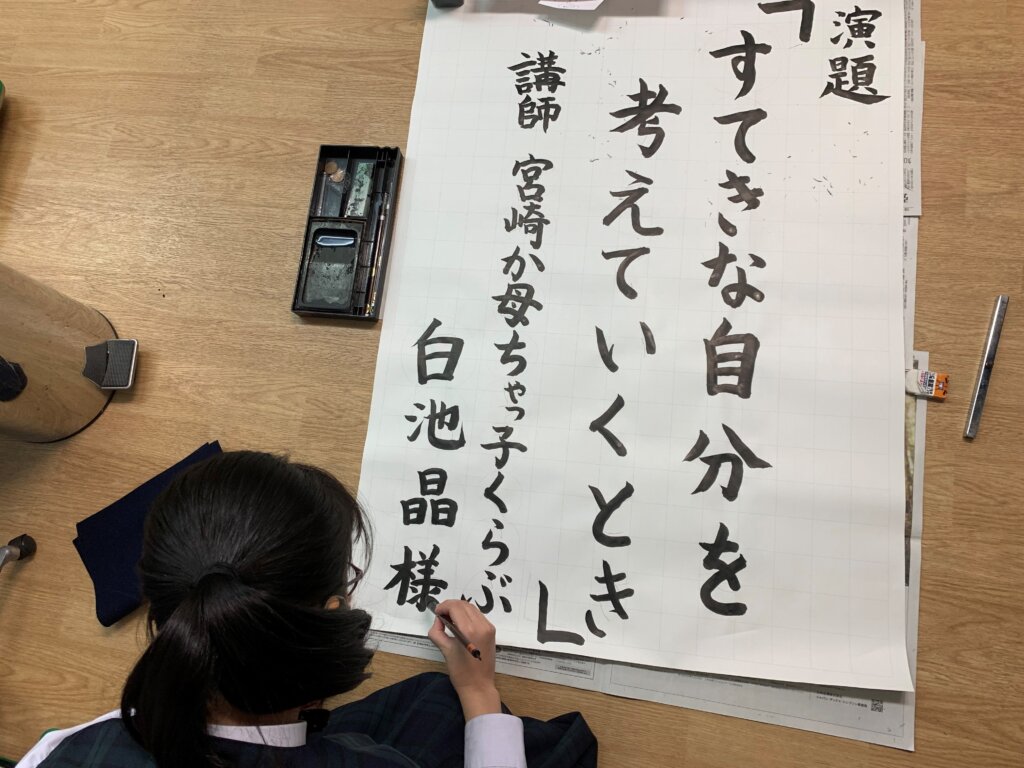 演題
「すてきな自分を
考えていくとき」
講師 宮崎か母ちゃっ子くらぶ
白池晶様